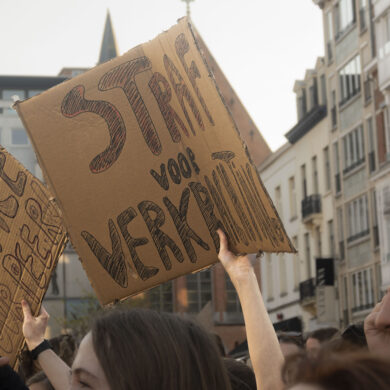 STRAF
VOOR
VERKRACHTING